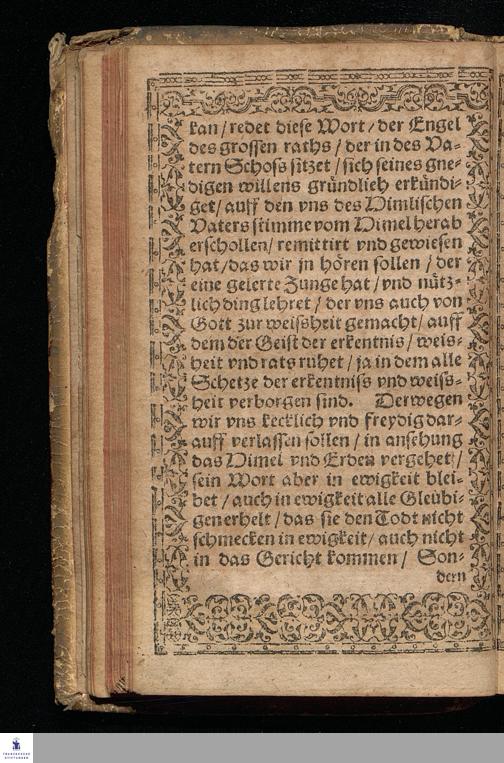 kan / redet diese Wort / der Engel
des grossen raths / der in des Va-
tern Schoss sitzet / sich seines gne-
digen willens gründlich erkündi-
get / auff den vns des Himlischen
Vaters stimme vom Himel herab
erschollen / remittirt vnd gewiesen
hat / das wir jn hören sollen / der
eine gelerte Zunge hat / vnd nütz-
lich ding lehret / der vns auch von
Gott zur weissheit gemacht / auff
dem der Geist der erkentnis / weis-
heit vnd rats ruhet / ja in dem alle
Schetze der erkentniss vnd weiss-
heit verborgen sind. Derwegen
wir vns kecklich vnd freydig dar-
auff verlassen sollen / in ansehung
das Himel vnd Erden vergehet /
sein Wort aber in ewigkeit blei-
bet / auch in ewigkeit alle Gleubi-
gen erhelt / das sie den Todt nicht
schmecken in ewigkeit / auch nicht
in das Gericht kommen / Son-
dern
FRANCKESCHE
STIFTUNGEN